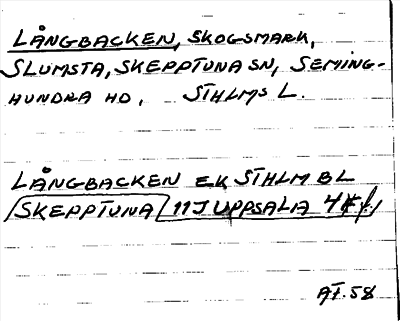 LÅNGBACKEN, SKOGSMARK,
SLUMSTA, SKEPPTUNA SN, SEMING-
HUNDRA HD, STHLMS L.
LÅNGBACKEN EK STHLM BL
SKEPPTUNA 11J UPPSALA
ÄT. 58